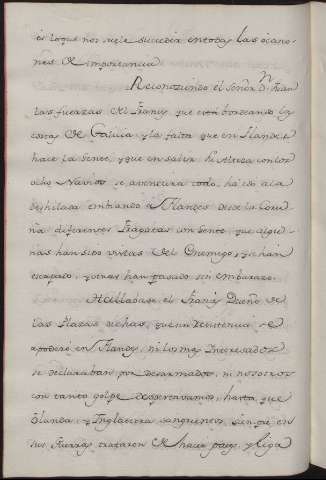 es lo que nos suele suceder en todas las ocasio-
nes de importancia
Reconoziendo el señor Dn. Juan
las fuerzas del frances que está bordeando las
costas de Galicia, y la falta que en Flandes
hace la gente, y que en salir su Alteza con los
ocho Navios se aventura todo, ha ido a la
deshilada embiando a Flandes desde la Coru-
ña diferentes fragatas con gente, que algu-
nas han sido vistas del Enemigo, y se han
escapado, y otras han pasado sin embarazo.
Hallabase el frances Dueño de
las Plazas dichas, que sin resistencia se
apoderó en Flandes, ni los mas Interesados
se declaraban por desarmados, ni nosotros
con tanto golpe despertavamos, hasta que
Olanda, y Inglaterra sangrienta siempre en
sus guerras trataron de hacer pazes, y liga